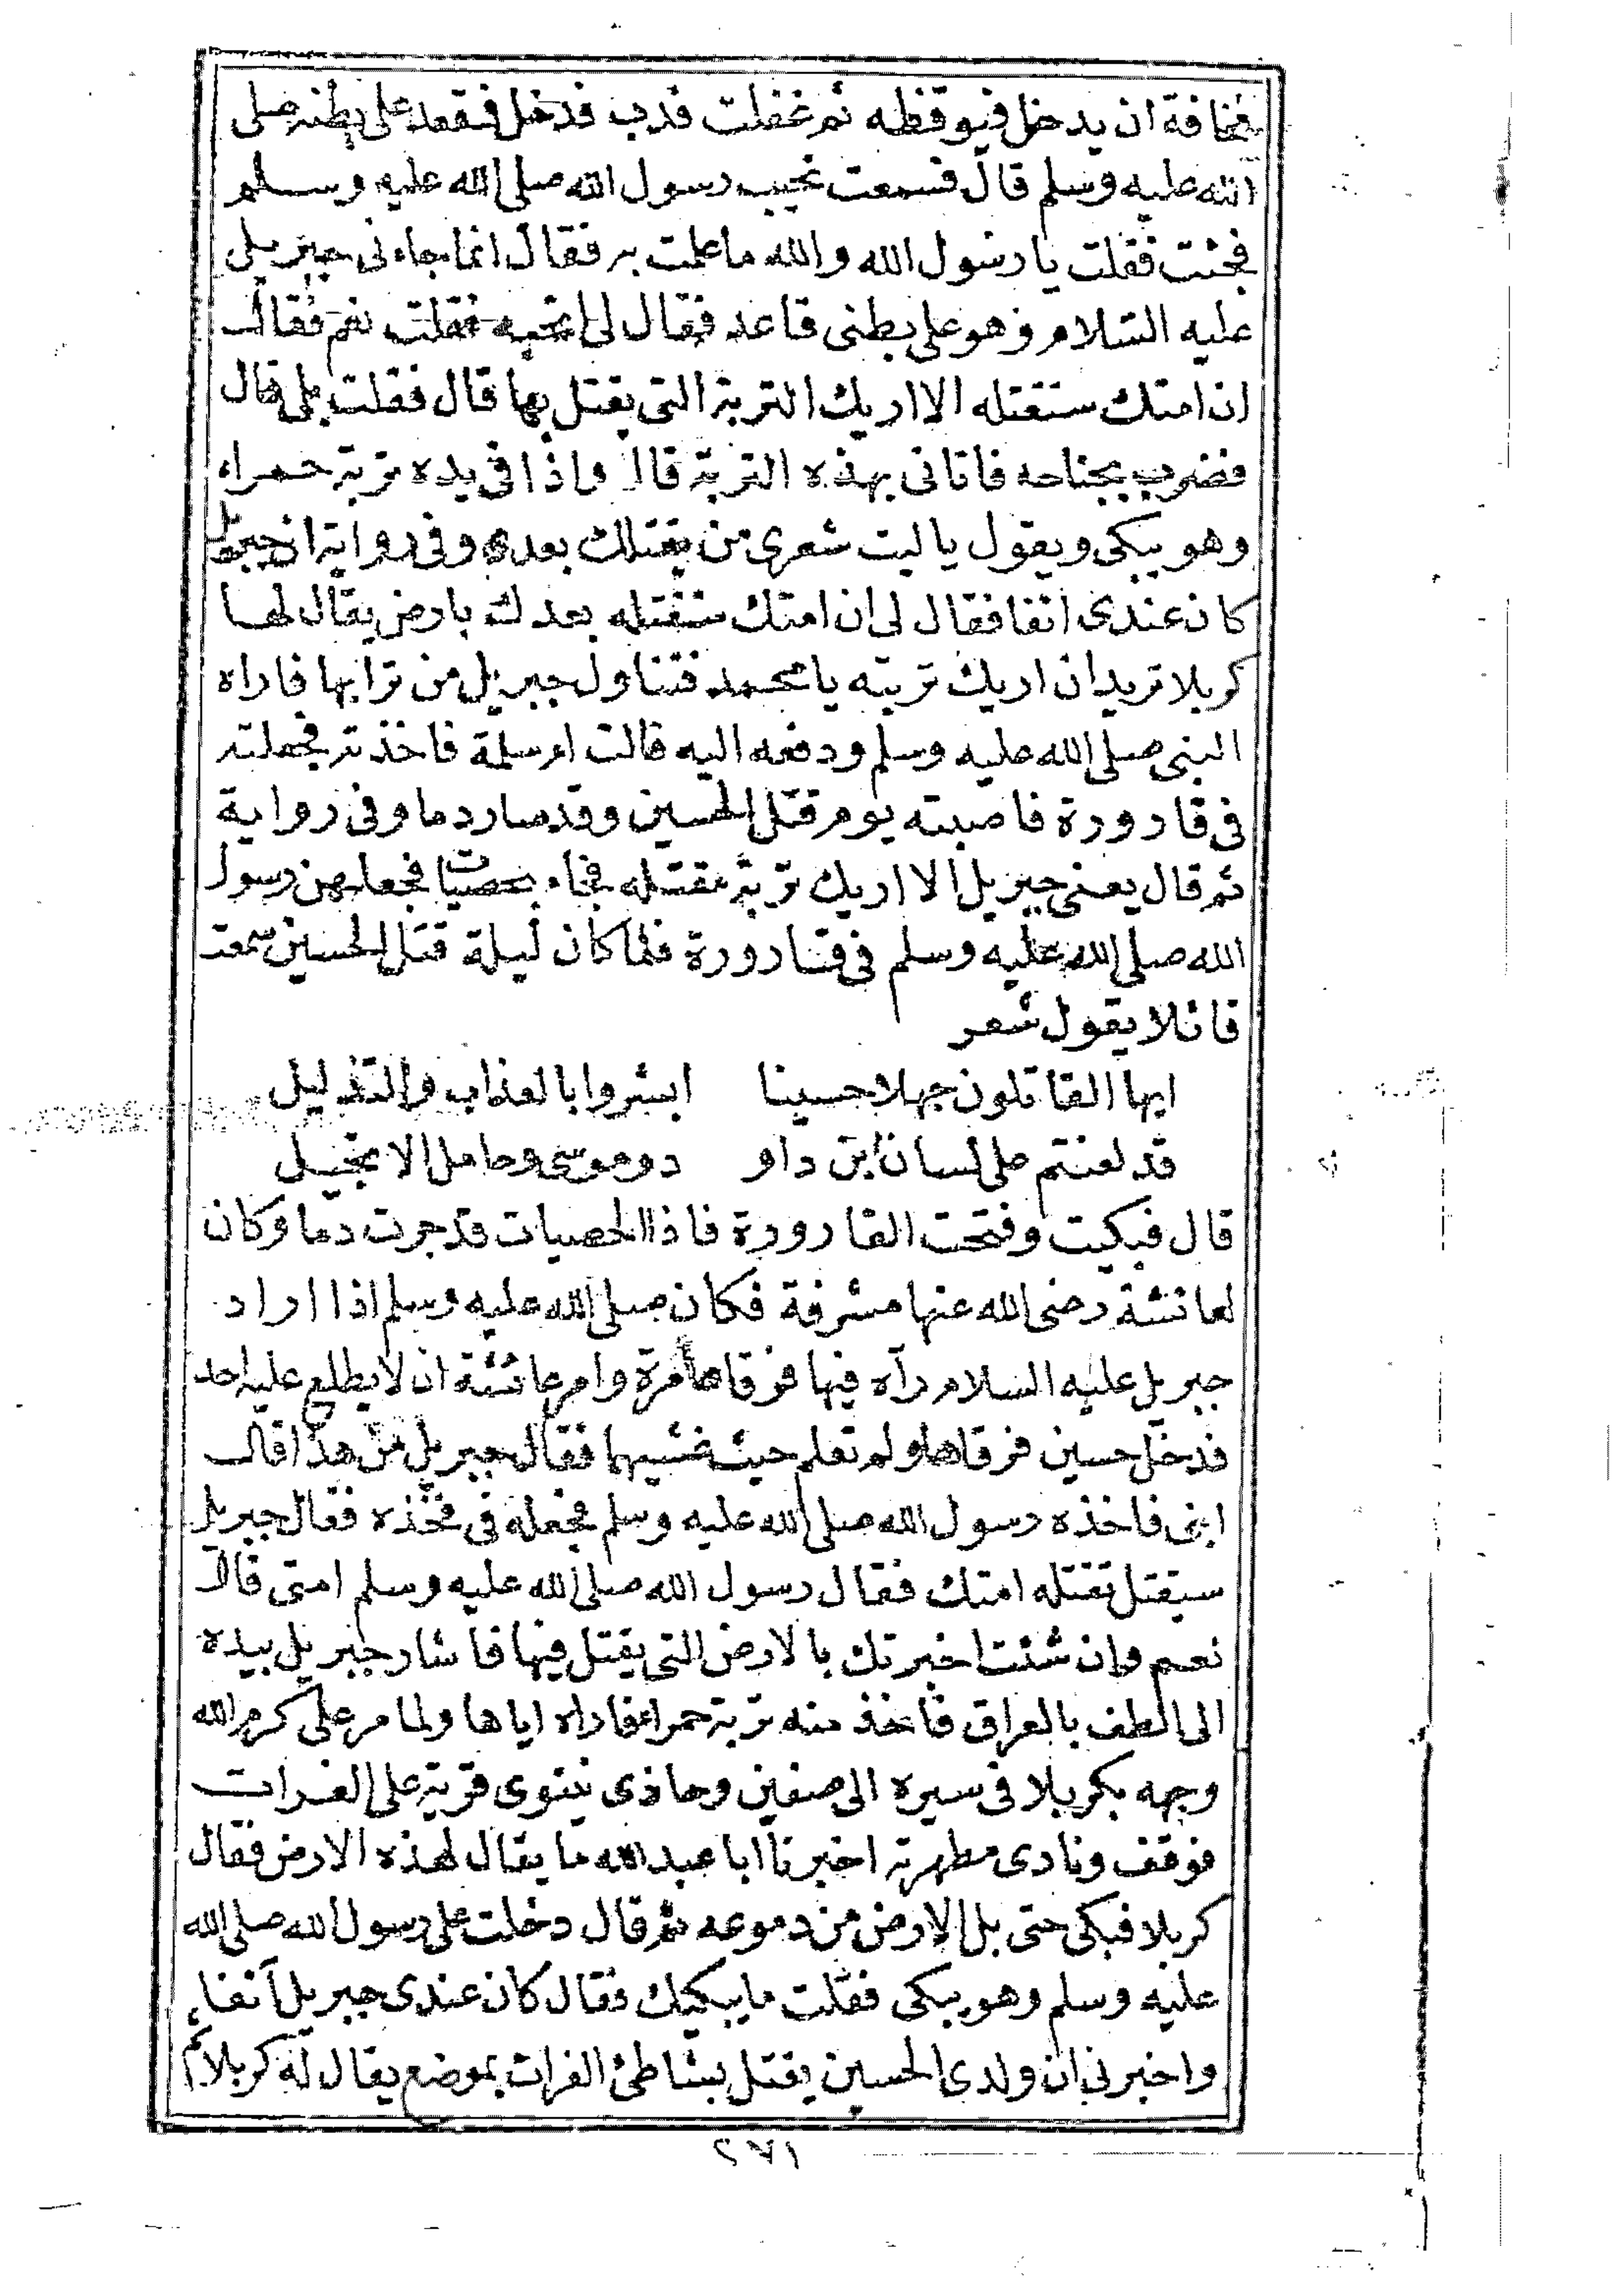 مخافة ان يدخل فيوقظه ثم غفلت فدب فدخل فقعد على بطنه صلى
الله عليه وسلم قال فسمعت نحيب رسول الله صلى الله عليه وسلم
فجئت فقلت يا رسول الله والله ما علمت به فقال انما جاءنى جبريل
عليه السلام وهو على بطنى قاعد فقال لى اتحبه فقلت نعم فقال
ان امتك ستقتله الا اريك التربة التى يقتل بها قال فقلت بلى قال
فضرب بجناحه فاتانى بهذه التربة قال واذا فى يده تربة حمراء
وهو يبكى ويقول يا ليت شعرى من يقتلك بعدى وفى رواية ان جبريل
كان عندى انفا فقال لى ان امتك ستقتله بعدك بارض يقال لها
كربلا تريد ان اريك تربته يا محمد فتناول جبريل من ترابها فاراه
النبى صلى الله عليه وسلم ودفعه اليه قالت ام سلمة فاخذته فجعلته
فى قارورة فاصبته يوم قتل الحسين وقد صار دما وفى رواية
ثم قال يعنى جبريل الا اريك تربة مقتله فجاء بحصيات فجعلهن رسول
الله صلى الله عليه وسلم فى قارورة فلما كان ليلة قتل الحسين سمعت
قائلا يقول شعر
ايها القاتلون جهلا حسينا ابشروا بالعذاب والتذليل
قد لعنتم على لسان ابن داو دوموسى وحامل الانجيل
قال فبكيت وفتحت القارورة فاذا الحصيات قد جرت دما وكان
لعائشة رضى الله عنها مشرفة فكان صلى الله عليه وسلم اذا اراد
جبريل عليه السلام رآه فيها فرقاها مرة وامر عائشة ان لا يطلع عليه احد
فدخل حسين فرقاها ولم تعلم حيث غشيهما فقال جبريل من هذا قال
ابنى فاخذه رسول الله صلى الله عليه وسلم فجعله فى فخذه فقال جبريل
سيقتل تقتله امتك فقال رسول الله صلى الله عليه وسلم امتى قال
نعم وان شئت اخبرتك بالارض التى يقتل فيها فاشار جبريل بيده
الى الطف بالعراق فاخذ منه تربة حمراء فاراه اياها ولما مر على كرم الله
وجهه بكربلا فى سيره الى صفين وحاذى نينوى قرية على الفرات
فوقف ونادى مطهرته اخبرنا ابا عبد الله ما يقال لهذه الارض فقال
كربلا فبكى حتى بل الارض من دموعه ثم قال دخلت على رسول الله صلى الله
عليه وسلم وهو يبكى فقلت ما يبكيك فقال كان عندى جبريل آنفا
واخبرنى ان ولدى الحسين يقتل بشاطئ الفرات بموضع يقال له كربلا ثم
٢٧١